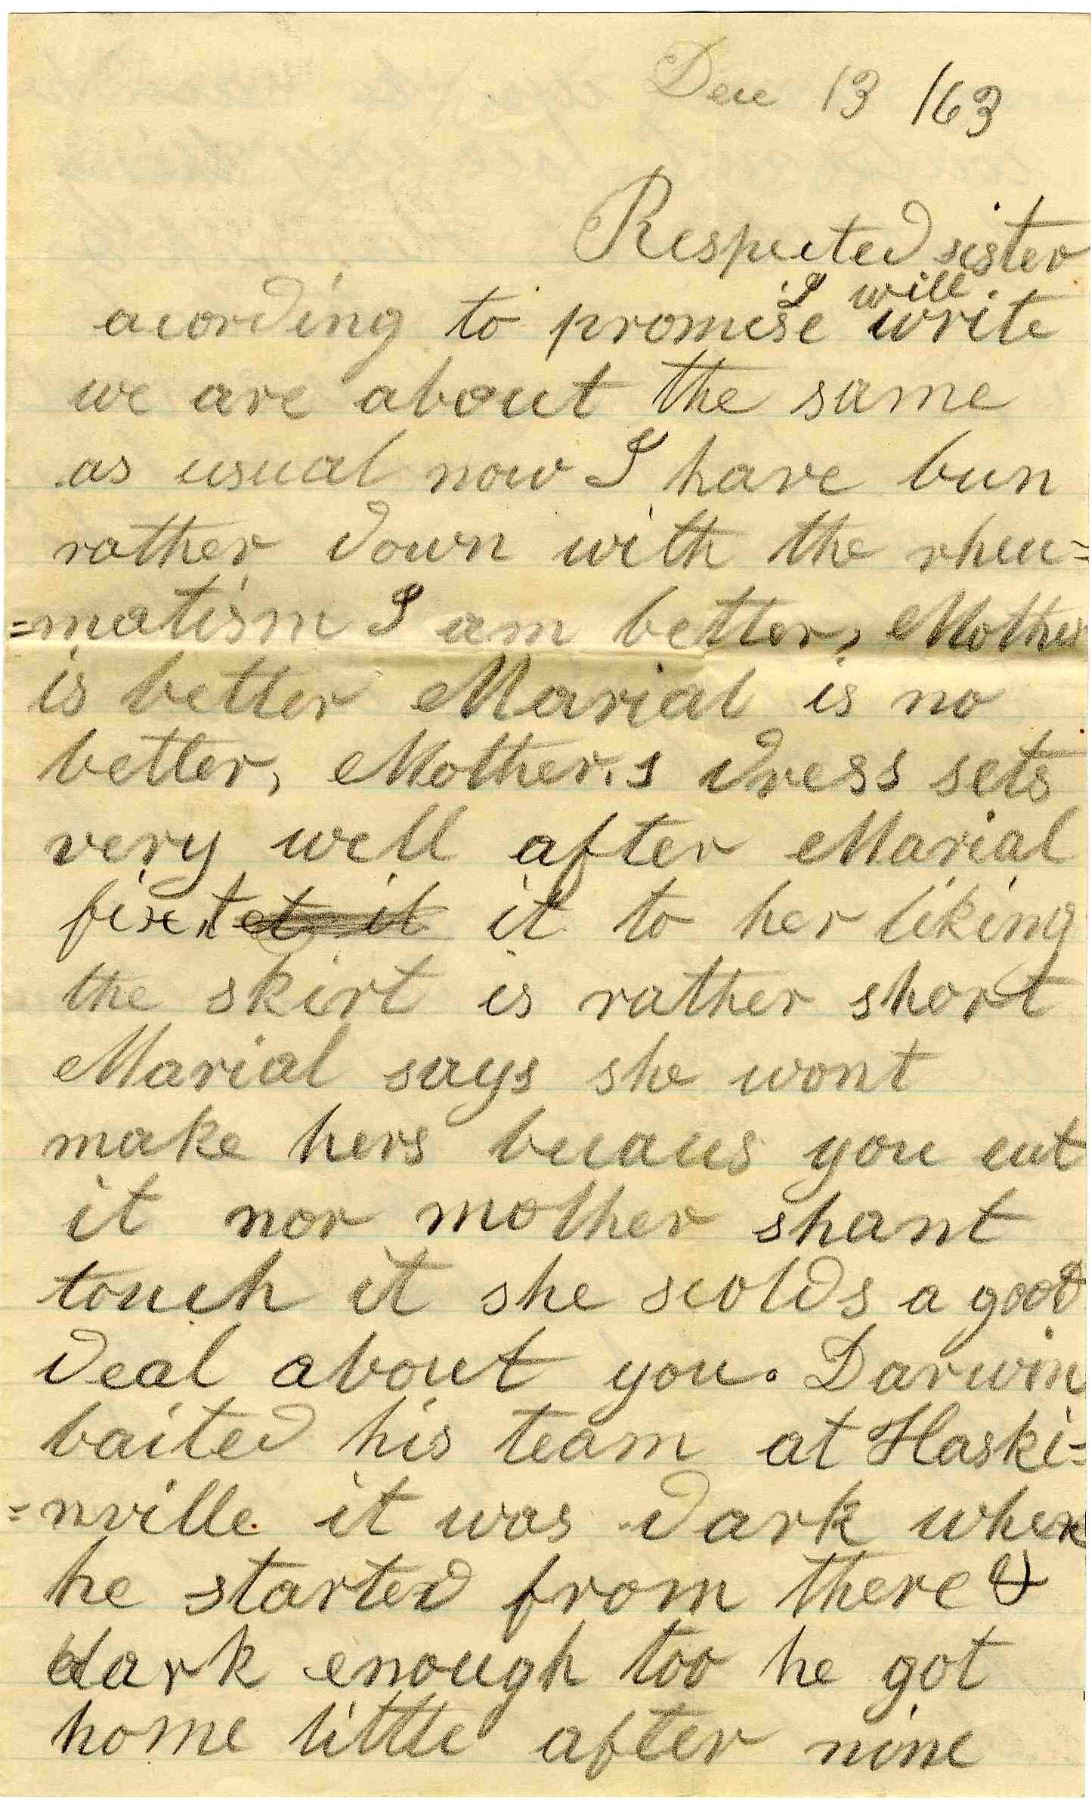 Dec 13 /63
Respected sister
acording to promise I will write
we are about the same
as usual now I have been
rather down with the rheu=
=matism I am better, Mother
is better Marial is no
better, Mother,s dress sets
very well after Marial
fixt et it it to her liking
the skirt is rather short
Marial says she wont
make hers becaus you cut
it nor mother shant
touch it she scolds a good
deal about you. Darwin
baited his team at Haski=
=nville it was dark when
he started from there &
dark enough too he got
home little after nine